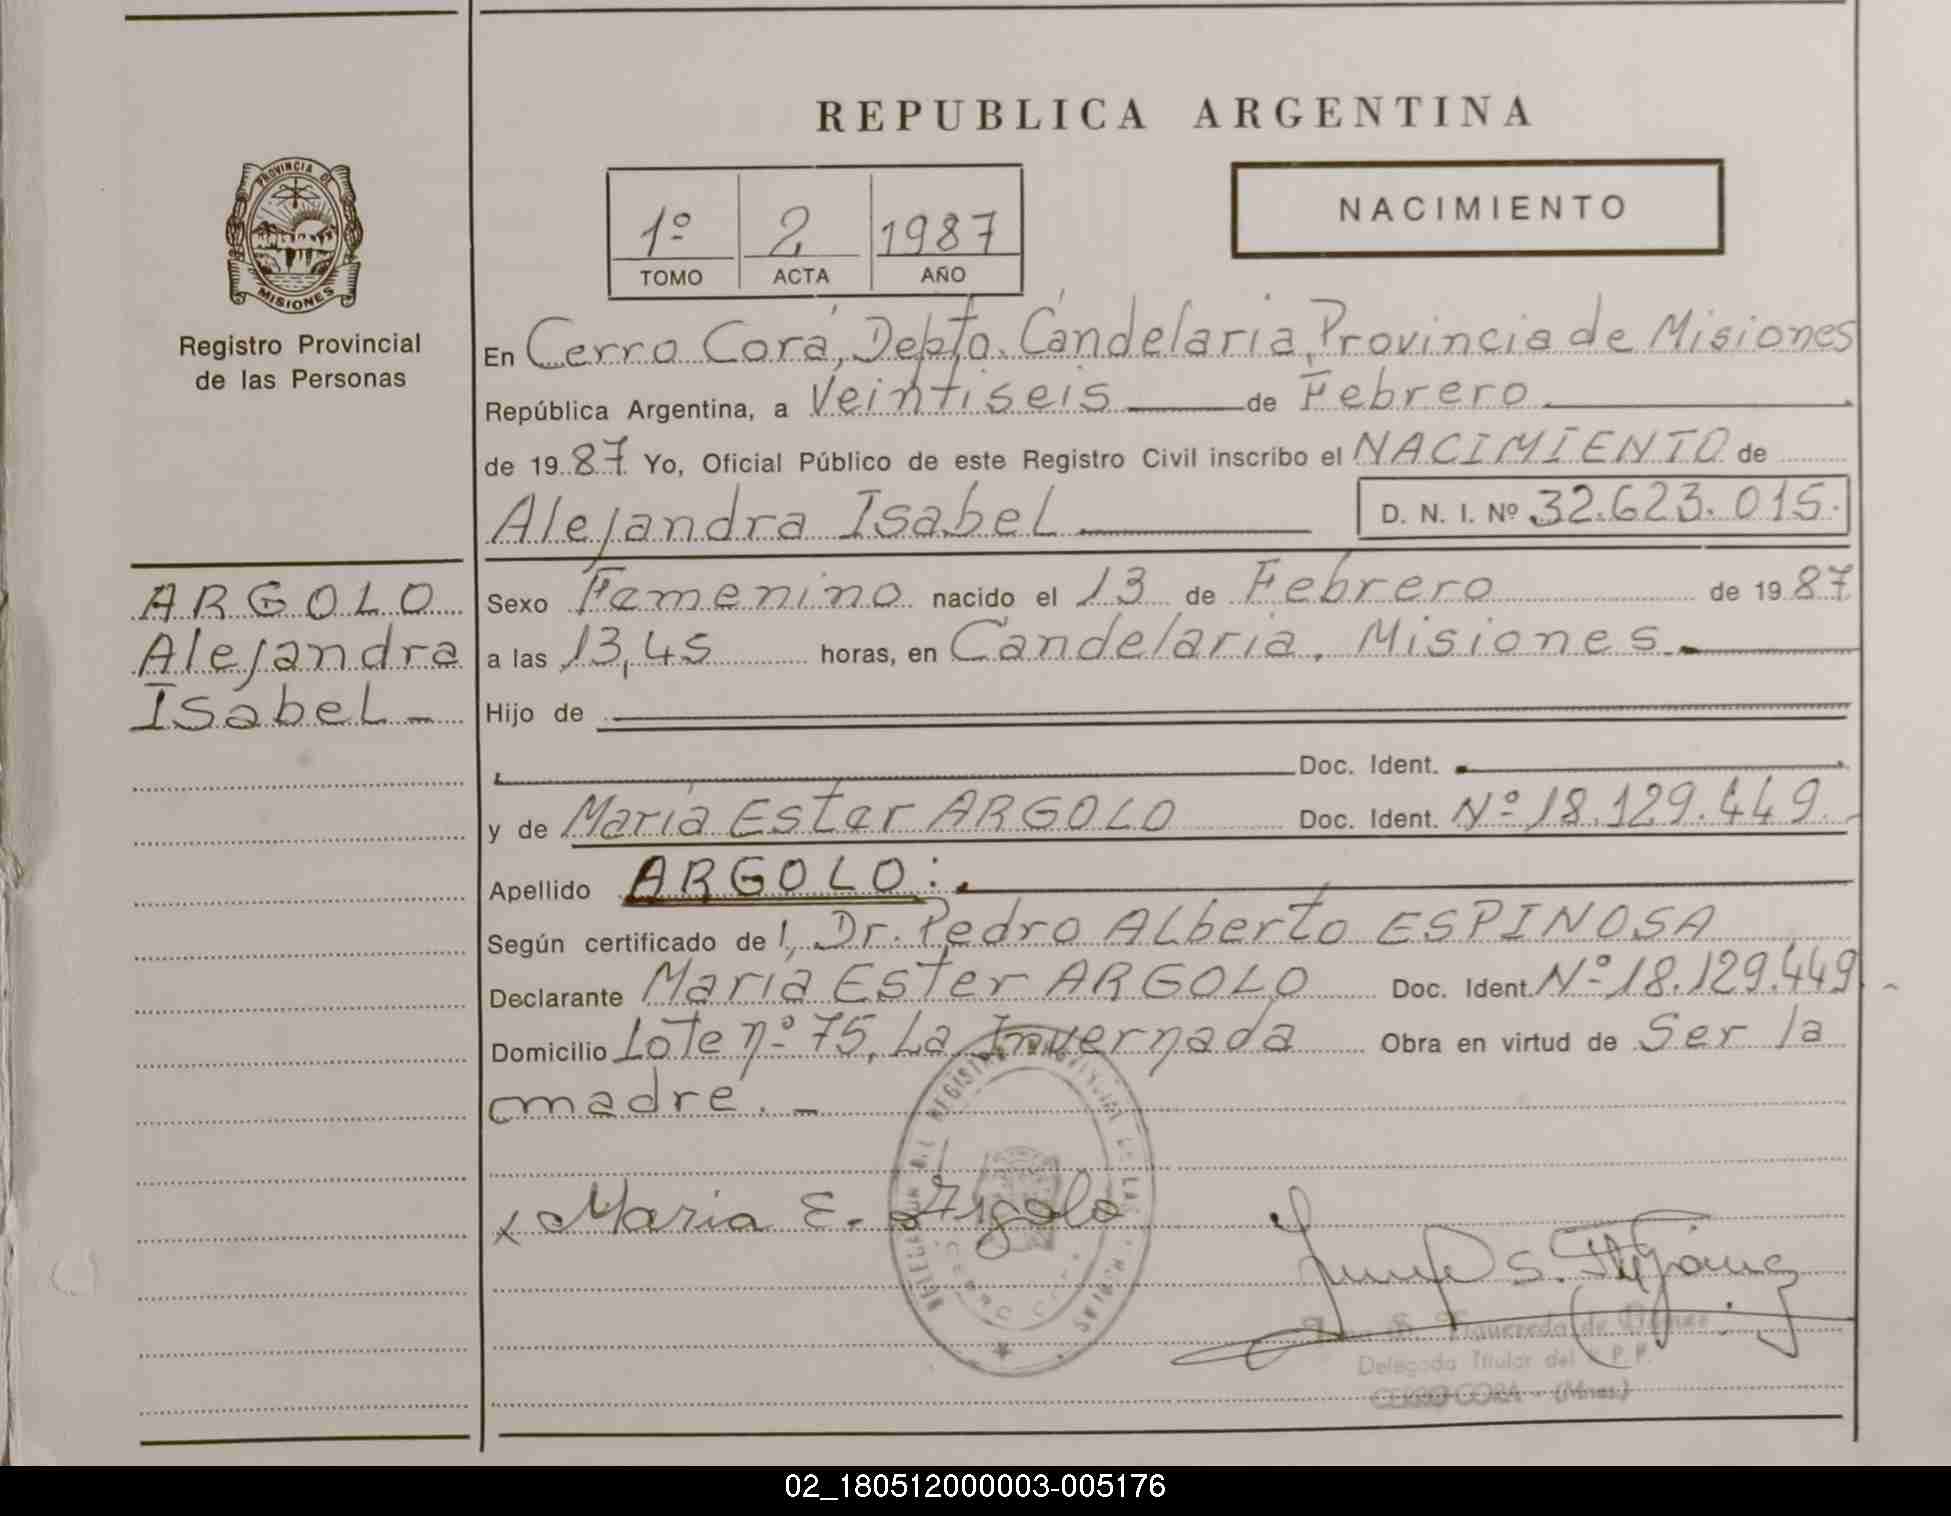 REPUBLICA ARGENTINA
PROVINCIA DE
MISIONES
Registro Provincial
de las Personas
1º 2 1987
TOMO ACTA AÑO
NACIMIENTO
En Cerro Corá, Depto. Candelaria, Provincia de Misiones
República Argentina, a Veintiseis de Febrero
de 19 87 Yo, Oficial Público de este Registro Civil inscribo el NACIMIENTO de
Alejandra Isabel D. N. I. Nº 32.623.015.
ARGOLO
Alejandra
Isabel
Sexo Femenino nacido el 13 de Febrero de 19 87
a las 13,45 horas, en Candelaria, Misiones.
Hijo de
Doc. Ident.
y de María Ester ARGOLO Doc. Ident. Nº 18.129.449.
Apellido ARGOLO:
Según certificado de l, Dr. Pedro Alberto ESPINOSA
Declarante María Ester ARGOLO Doc. Ident. Nº 18.129.449
Domicilio Lote nº 75, La Invernada Obra en virtud de Ser la
madre.
x Maria E. Argolo
S. Figueredo de
Delegada Titular del R. P. P.
CERRO CORA - (Mnes.)
02_180512000003-005176